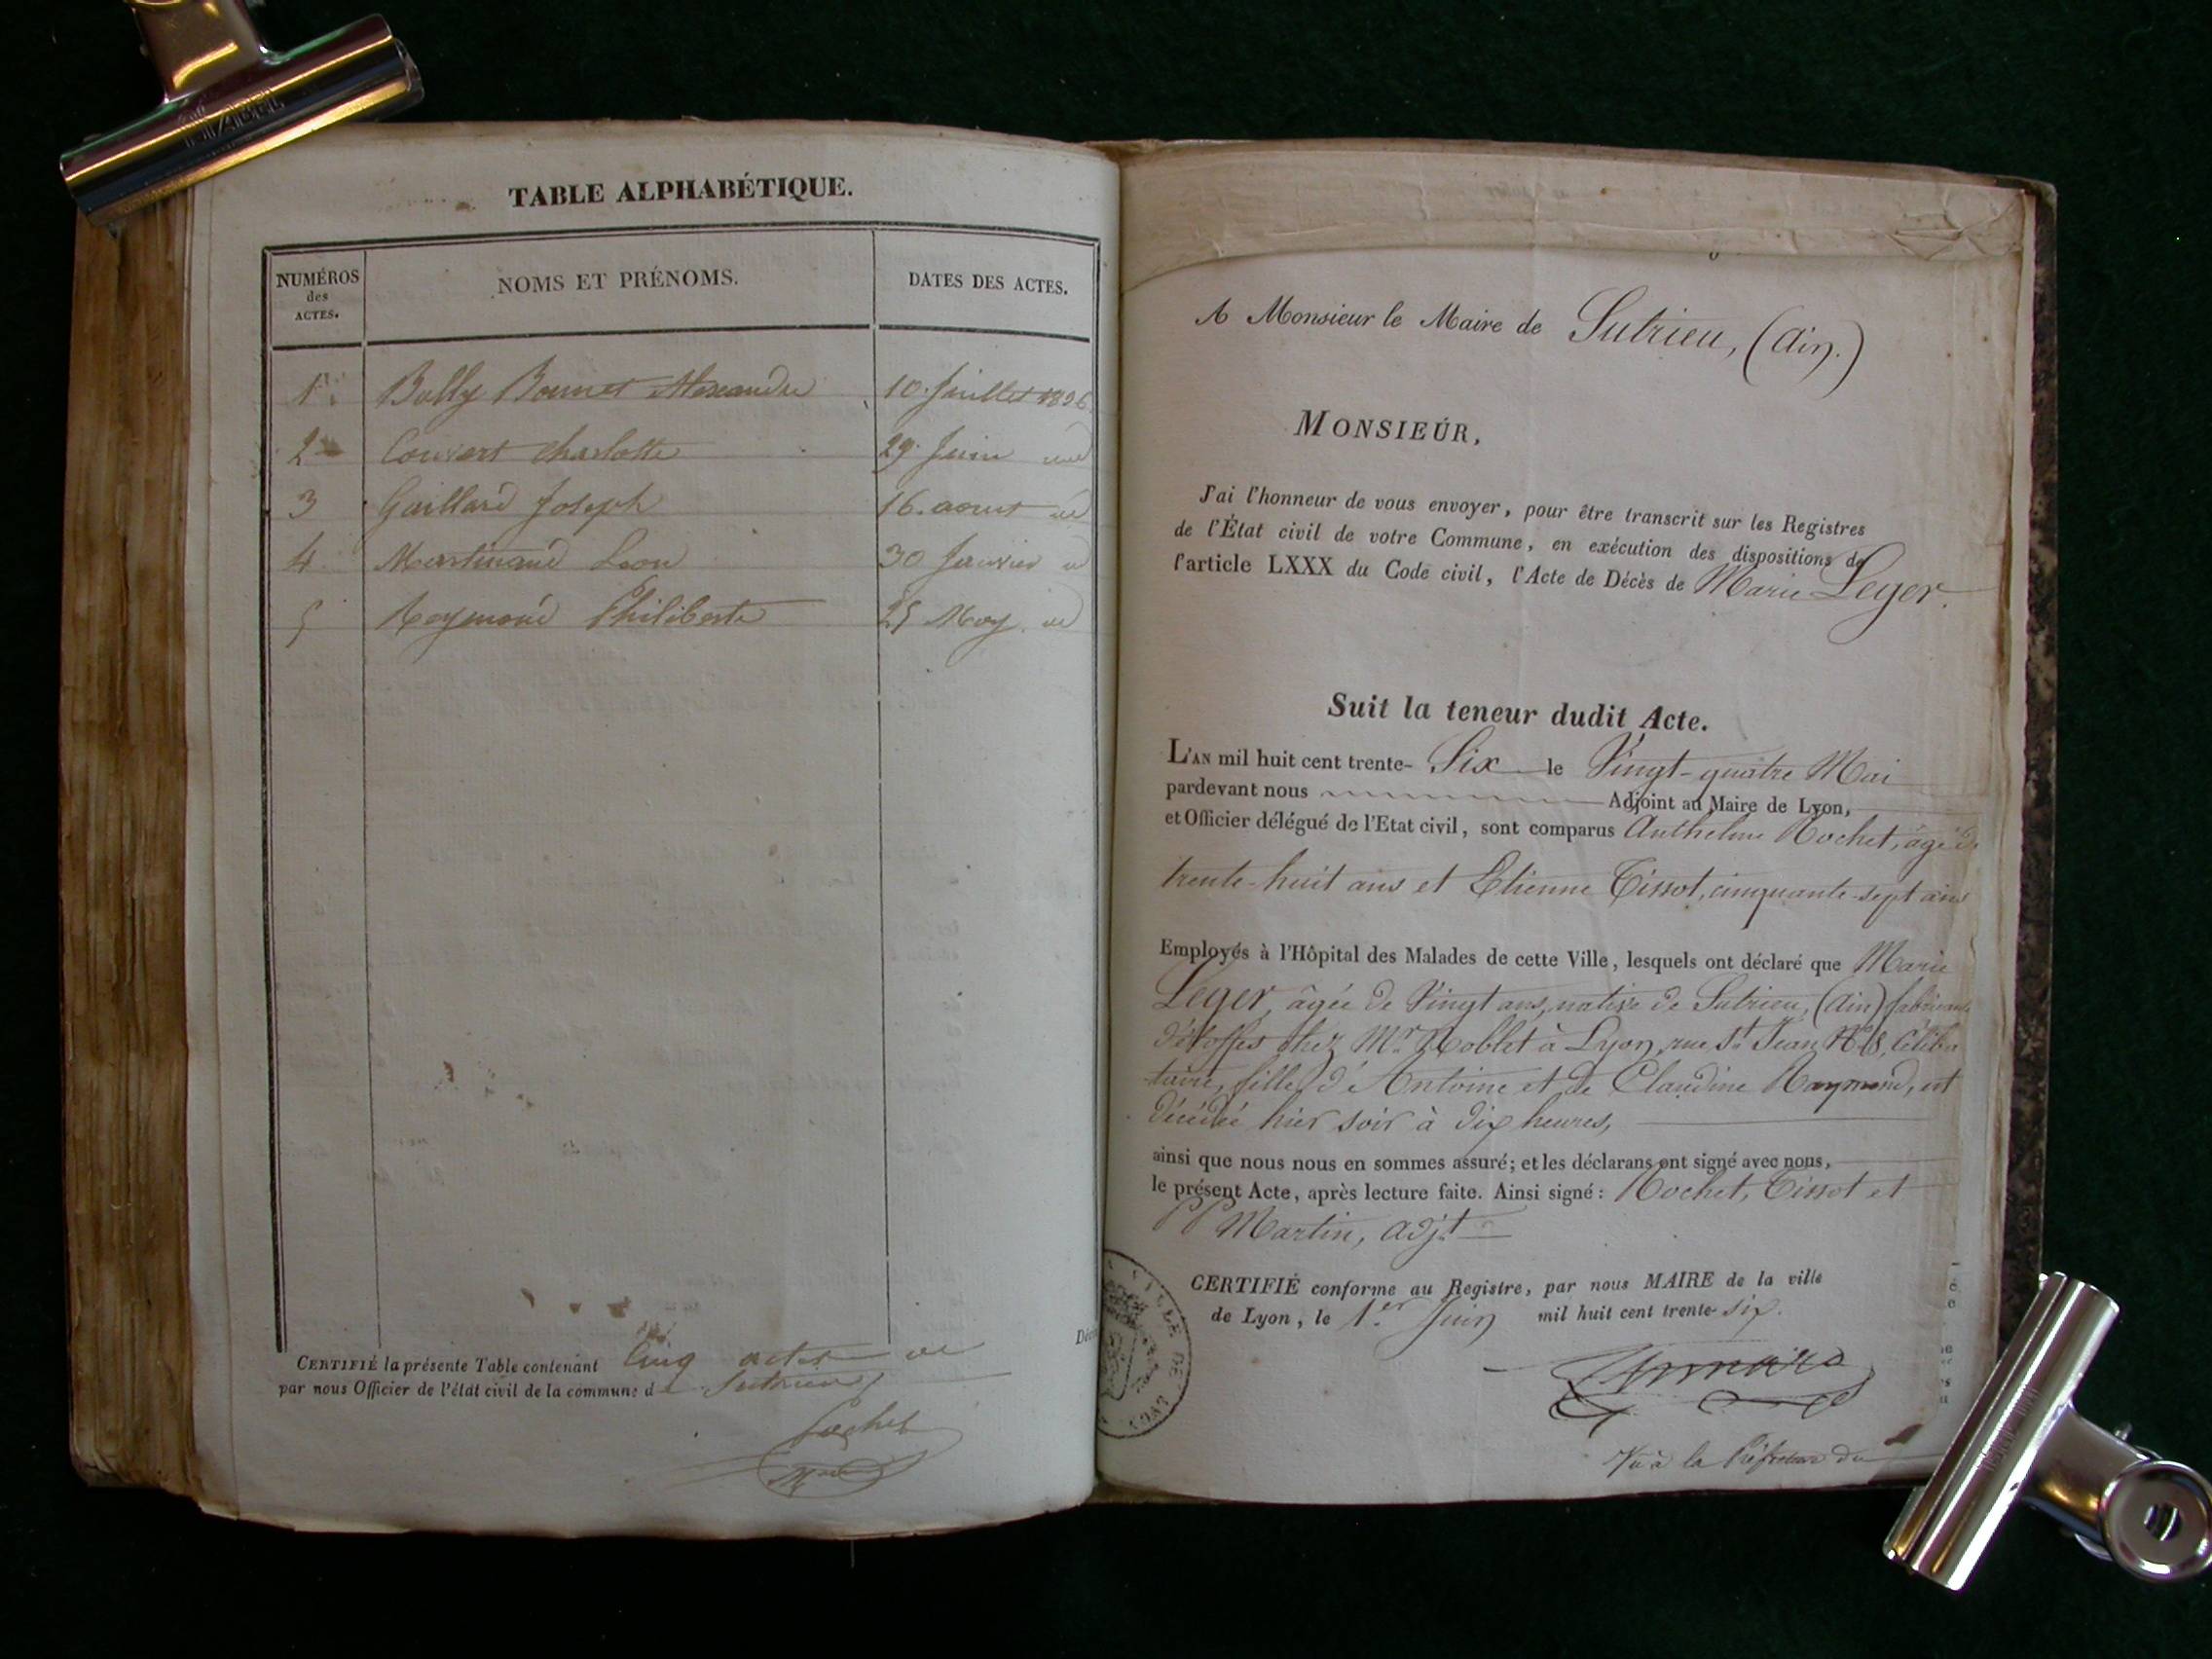 TABLE ALPHABÉTIQUE.
NUMÉROS des ACTES. NOMS ET PRÉNOMS. DATES DES ACTES.
1 Bally Alexandre 10 Juillet 1836
2 Couvert Charlotte 29 Juin
3 Gaillard Joseph 16 aout
4 Martinand Leon 30 Janvier
5 Reymond Philiberte 25 May
CERTIFIÉ la présente Table contenant Cinq actes
par nous Officier de l'état civil de la commune d Sutrieu
A Monsieur le Maire de Sutrieu, (Ain.)
MONSIEUR,
J'ai l'honneur de vous envoyer, pour être transcrit sur les Registres
de l'État civil de votre Commune, en exécution des dispositions de
l'article LXXX du Code civil, l'Acte de Décès de Marie Leger.
Suit la teneur dudit Acte.
L'AN mil huit cent trente- Six le Vingt-quatre Mai
pardevant nous Adjoint au Maire de Lyon,
et Officier délégué de l'Etat civil, sont comparus Anthelme Rochet, âgé de
trente-huit ans et Etienne Tissot, cinquante-sept ans
Employés à l'Hôpital des Malades de cette Ville, lesquels ont déclaré que Marie
Leger, âgée de Vingt ans, native de Sutrieu, (Ain) fabricante
d'étoffes chez Mr. Noblet à Lyon, rue St Jean No 18, Céliba
taire, fille d'Antoine et de Claudine Raymond, est
décédée hier soir à dix heures,
ainsi que nous nous en sommes assuré; et les déclarans ont signé avec nous,
le présent Acte, après lecture faite. Ainsi signé: Rochet, Tissot et
Martin, adjt
CERTIFIÉ conforme au Registre, par nous MAIRE de la ville
de Lyon, le 1er Juin mil huit cent trente-six.
Vu à la Préfecture du
VILLE DE